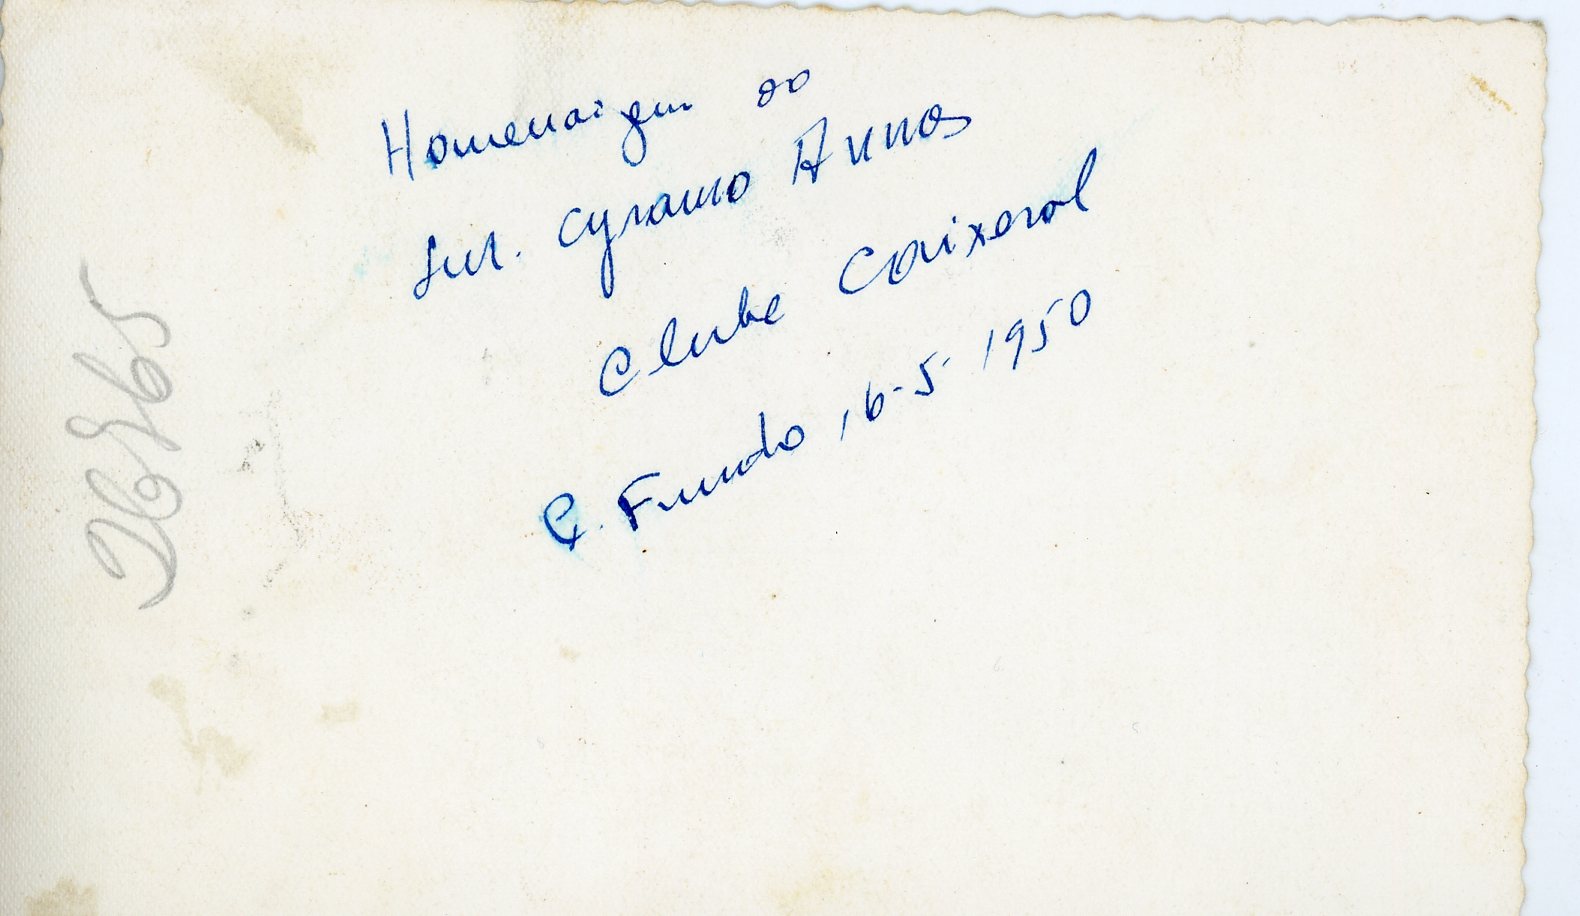 Homenaigem ao
Snr. Cyranno Annes
Clube Caixeral
P. Fundo, 6-5-1950
26265